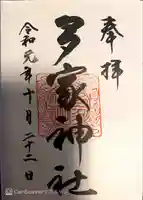 奉拝
多家神社
令和元年十月二十二日
CamScanner